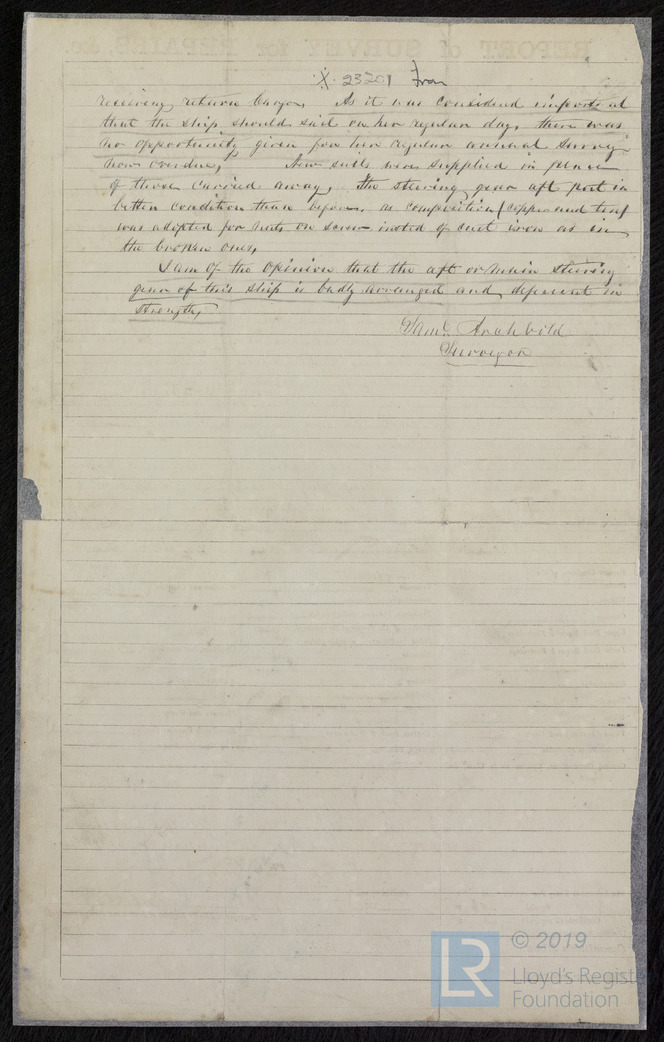 23201 Iron
receiving return cargo. As it was considered important
that the ship should sail on her regular day, there was
no opportunity given for her regular annual survey
now overdue, New sails were supplied in place
of those carried away, The steering gear aft put in
better condition than before, as composition (copper and tin)
was adopted for nuts on screw insted of cast iron as in
the broken ones,
I am of the opinion that the aft or main steering
gear of this ship is badly arranged and deficient in
strength,
Saml. Archbold
Surveyor
REPORT of SURVEY for REPAIRS, &c.
LR © 2019
Lloyd's Register
Foundation